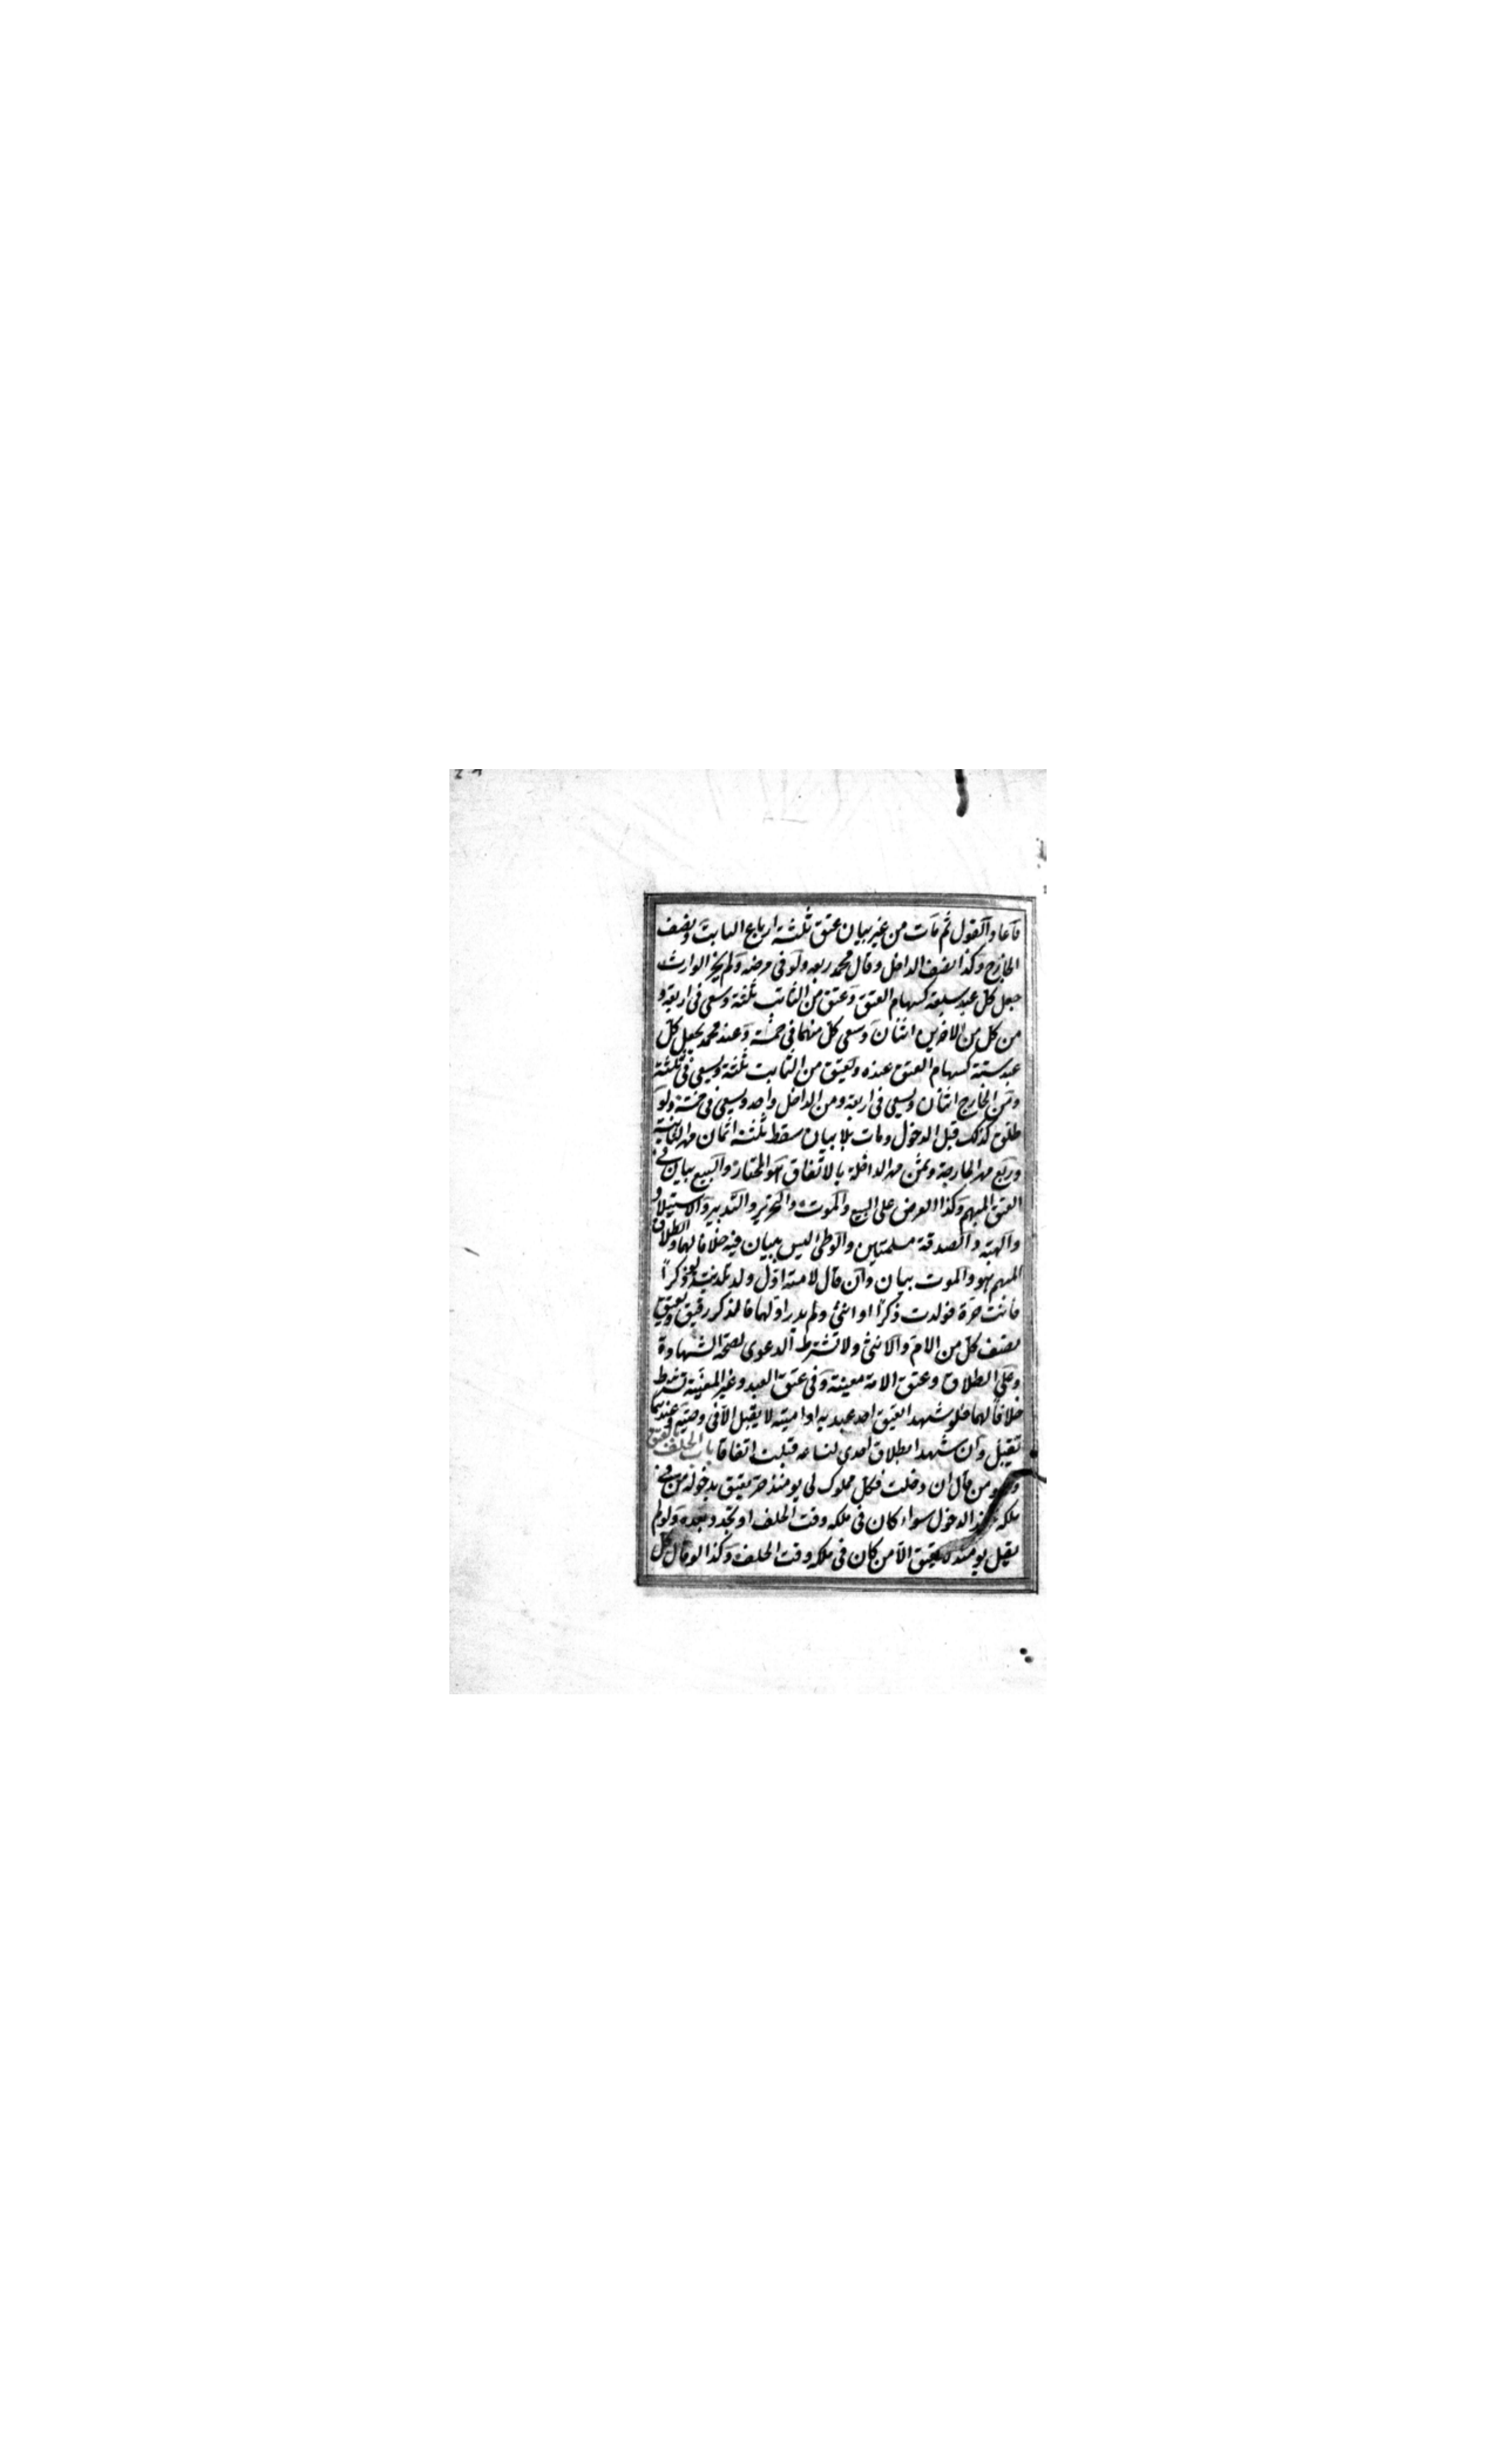 فاعاد القول ثم مات من غير بيان عتق ثلثة ارباع الثابت ونصف
الخارج وكذا نصف الداخل وقال محمد ربعه ولو في مرضه ولم يجز الوارث
جعل كل عبد سبعة كسهام العتق وعتق من الثابت ثلثة وسعى في اربعة و
من كل من الاخرين اثنان وسعى كل منهما في خمسة وعند محمد يجعل كل
عبد ستة كسهام العتق عنده ويعتق من الثابت ثلثة ويسعى في ثلثة
ومن الخارج اثنان ويسعى في اربعة ومن الداخل واحد ويسعى في خمسة ولو
طلق كذلك قبل الدخول ومات بلا بيان سقط ثلثة اثمان مهر الثابتة
وربع مهر الخارجة وثمن مهر الداخلة بالاتفاق هو المختار والبيع بيان في
العتق المبهم وكذا العرض على البيع والموت والتحرير والتدبير والاستيلاد
والهبة والصدقة مسلمتين والوطئ ليس ببيان فيه خلافا لهما وفي الطلاق
المبهم هو والموت بيان وان قال لامته اول ولد تلدينه لو ذكرا
فانت حرة فولدت ذكرا او انثى ولم يدر اولهما فالذكر رقيق ويعتق
نصف كل من الام والانثى ولا تشترط الدعوى لصحة الشهادة
وعلى الطلاق وعتق الامة معينة وفي عتق العبد وغير المعينة تشترط
خلافا لهما فلو شهدا بعتق احد عبديه او امتيه لا يقبل الا في وصية وعندهما
تقبل وان شهدا بطلاق احدى نسائه قبلت اتفاقا باب الحلف بالعتق
ومن قال ان دخلت فكل مملوك لي يومئذ حر يعتق بدخوله من في
ملكه عند الدخول سواء كان في ملكه وقت الحلف او تجدد بعده ولو لم
يقل يومئذ لا يعتق الا من كان في ملكه وقت الحلف وكذا لو قال كل